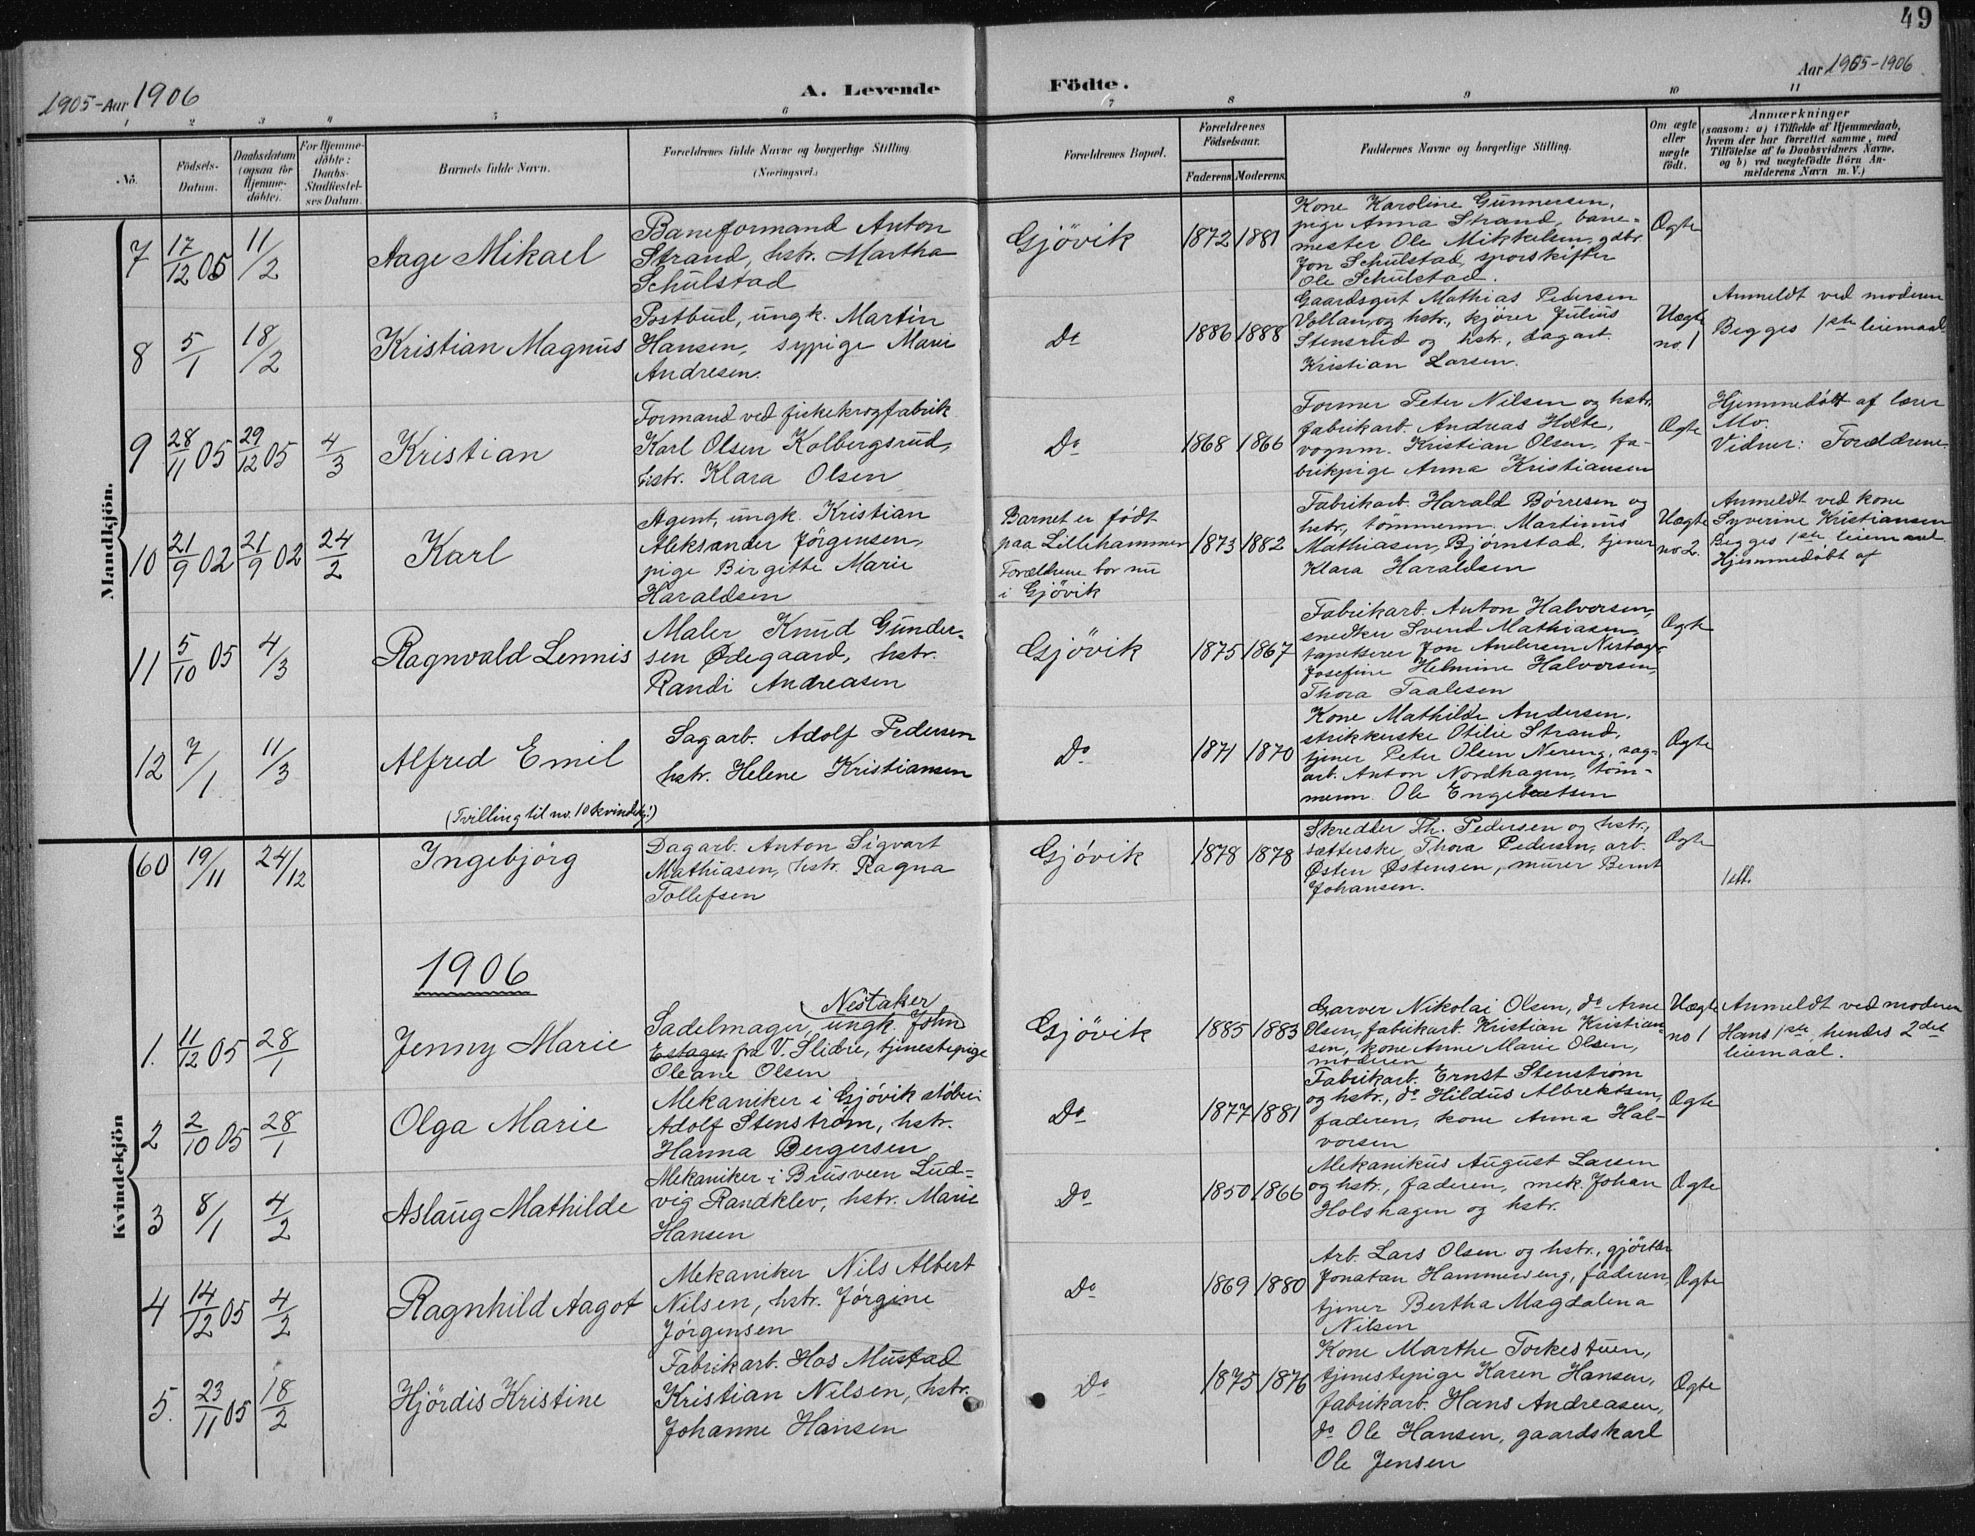 49
1905-Aar 1906
A. Levende
Födte.
Aar 1905-1906
1
2
3
4
5
6
7
8
9
10
11
No.
Födsels-
Datum.
Daabsdatum
(ogsaa for
Hjemme-
döbte).
For Hjemme-
döbte:
Daabs-
Stadfæstel-
ses Datum.
Barnets fulde Navn.
Forældrenes fulde Navne og borgerlige Stilling.
(Næringsvei.)
Forældrenes Bopæl.
Forældrenes
Födselsaar.
Faderens.
Moderens.
Faddernes Navne og borgerlige Stilling.
Om ægte
eller
uægte
födt.
Anmærkninger
(saasom: a) i Tilfælde af Hjemmedaab,
hvem der har forrettet samme, med
Tilföielse af to Daabsvidners Navne,
og b) ved uægtefödte Börn An-
melderens Navn m. V.)
Mandkjön.
7
17/12 05
11/2
Aage Mikael
Baneformand Anton
Strand, hstr. Martha
Schulstad
Gjövik
1872
1881
Kone Karoline Gunnersen,
pige Anna Strand, bane-
mester Ole Mikkelsen, gdbr.
Jon Schulstad, sporskifter
Ole Schulstad.
Ægte
8
5/1
18/2
Kristian Magnus
Postbud, ungk. Martin
Hansen, sypige Marie
Andresen.
Do
1886
1888
Gaardsgut Mathias Pedersen
Vollan, og hstr., kjører Julius
Stensrud og hstr., dagarb.
Kristian Larsen.
Uægte
no. 1
Anmeldt ved moderen
Begges 1ste leiemaal.
9
28/11 05
29/12 05
4/3
Kristian
Formand ved fiskekrogfabrik
Karl Olsen Kolbergsrud,
hstr. Klara Olsen
Do
1868
1866
Former Peter Nilsen og hstr.,
fabrikarb. Andreas Holte,
vognm. Kristian Olsen, fa-
brikpige Anna Kristiansen
Ægte
Hjemmedöbt af lærer
Mo.
Vidner: Forældrene
10
21/9 02
21/9 02
24/2
Karl
Agent, ungk. Kristian
Aleksander Jörgensen,
pige Bergitte Marie
Haraldsen
Barnet er født
paa Lillehammer
Forældrene bor nu
i Gjövik
1873
1882
Fabrikarb. Harald Börresen og
hstr., tömmerm. Martinus
Mathiasen, Bjørnstad, tjener
Klara Haraldsen
Uægte
no 2.
Anmeldt ved kone
Syverine Kristiansen
Begges 1ste leiemaal.
Hjemmedöbt af
11
5/10 05
4/3
Ragnvald Lennis
Maler Knud Gunder-
sen Ødegaard, hstr.
Randi Andreasen
Gjövik
1875
1867
Fabrikarb. Anton Halvorsen,
snedker Svend Mathiasen,
tapetserer Jon Andersen
Josefine Helmine Halvorsen,
Thora Taalesen
Ægte
12
7/1
11/3
Alfred Emil
(Tvilling til no. 10 kvindekj.)
Sagarb. Adolf Pedersen
hstr. Helene Kristiansen
Do
1871
1870
Kone Mathilde Andersen,
strikkerske Otilie Strand,
tjener Peter Olsen Nereng, sag-
arb. Anton Nordhagen, töm-
merm. Ole Engebretsen
Ægte
Kvindekjön
60
19/11
24/12
Ingebjörg
Dagarb. Anton Sigvart
Mathiasen, hstr. Ragna
Tollefsen
Gjövik
1878
1878
Skredder Th. Pedersen og hstr.,
sætterske Thora Pedersen, arb.
Østen Østensen, murer Bernt
Johansen.
Ægte
1 att.
1906
1.
11/12 05
28/1
Jenny Marie
Nestaker
Sadelmager, ungk. John
Estager fra V. Slidre, tjenestepige
Oleane Olsen
Gjövik
1885
1883
Garver Nikolai Olsen, do Arne
Olsen, fabrikarb. Kristian Kristian-
sen, kone Anne Marie Olsen,
moderen
Uægte
no 1
Anmeldt ved moderen
Hans 1ste, hendes 2det
leiemaal.
2
2/10 05
28/1
Olga Marie
Mekaniker i Gjövik stöberi
Adolf Stenström, hstr.
Hanna Bergersen
Do
1877
1881
Fabrikarb. Ernst Stenström
og hstr., do Hildus Albrektsen,
faderen, kone Anna Hal-
vorsen
Ægte
3
8/1
4/2
Aslaug Mathilde
Mekaniker i Brusveen Lud-
vig Randklev, hstr. Marie
Hansen
Do
1850
1866
Mekanikus August Larsen
og hstr., faderen, mek. Johan
Holshagen og hstr.
Ægte
4
14/12 05
4/2
Ragnhild Aagot
Mekaniker Nils Albert
Nilsen, hstr. Jörgine
Jörgensen
Do
1869
1880
Arb. Lars Olsen og hstr., gjørtler
Jonatan Hammereng, faderen,
tjener Bertha Magdalena
Nilsen
Ægte
5.
23/11 05
18/2
Hjördis Kristine
Fabrikarb. Hos Mustad
Kristian Nilsen, hstr.
Johanne Hansen
Do
1875
1876
Kone Marthe Torkestuen,
tjenestepige Karen Hansen,
fabrikarb. Hans Andreasen,
do Ole Hansen, gaardskarl
Ole Jensen
Ægte